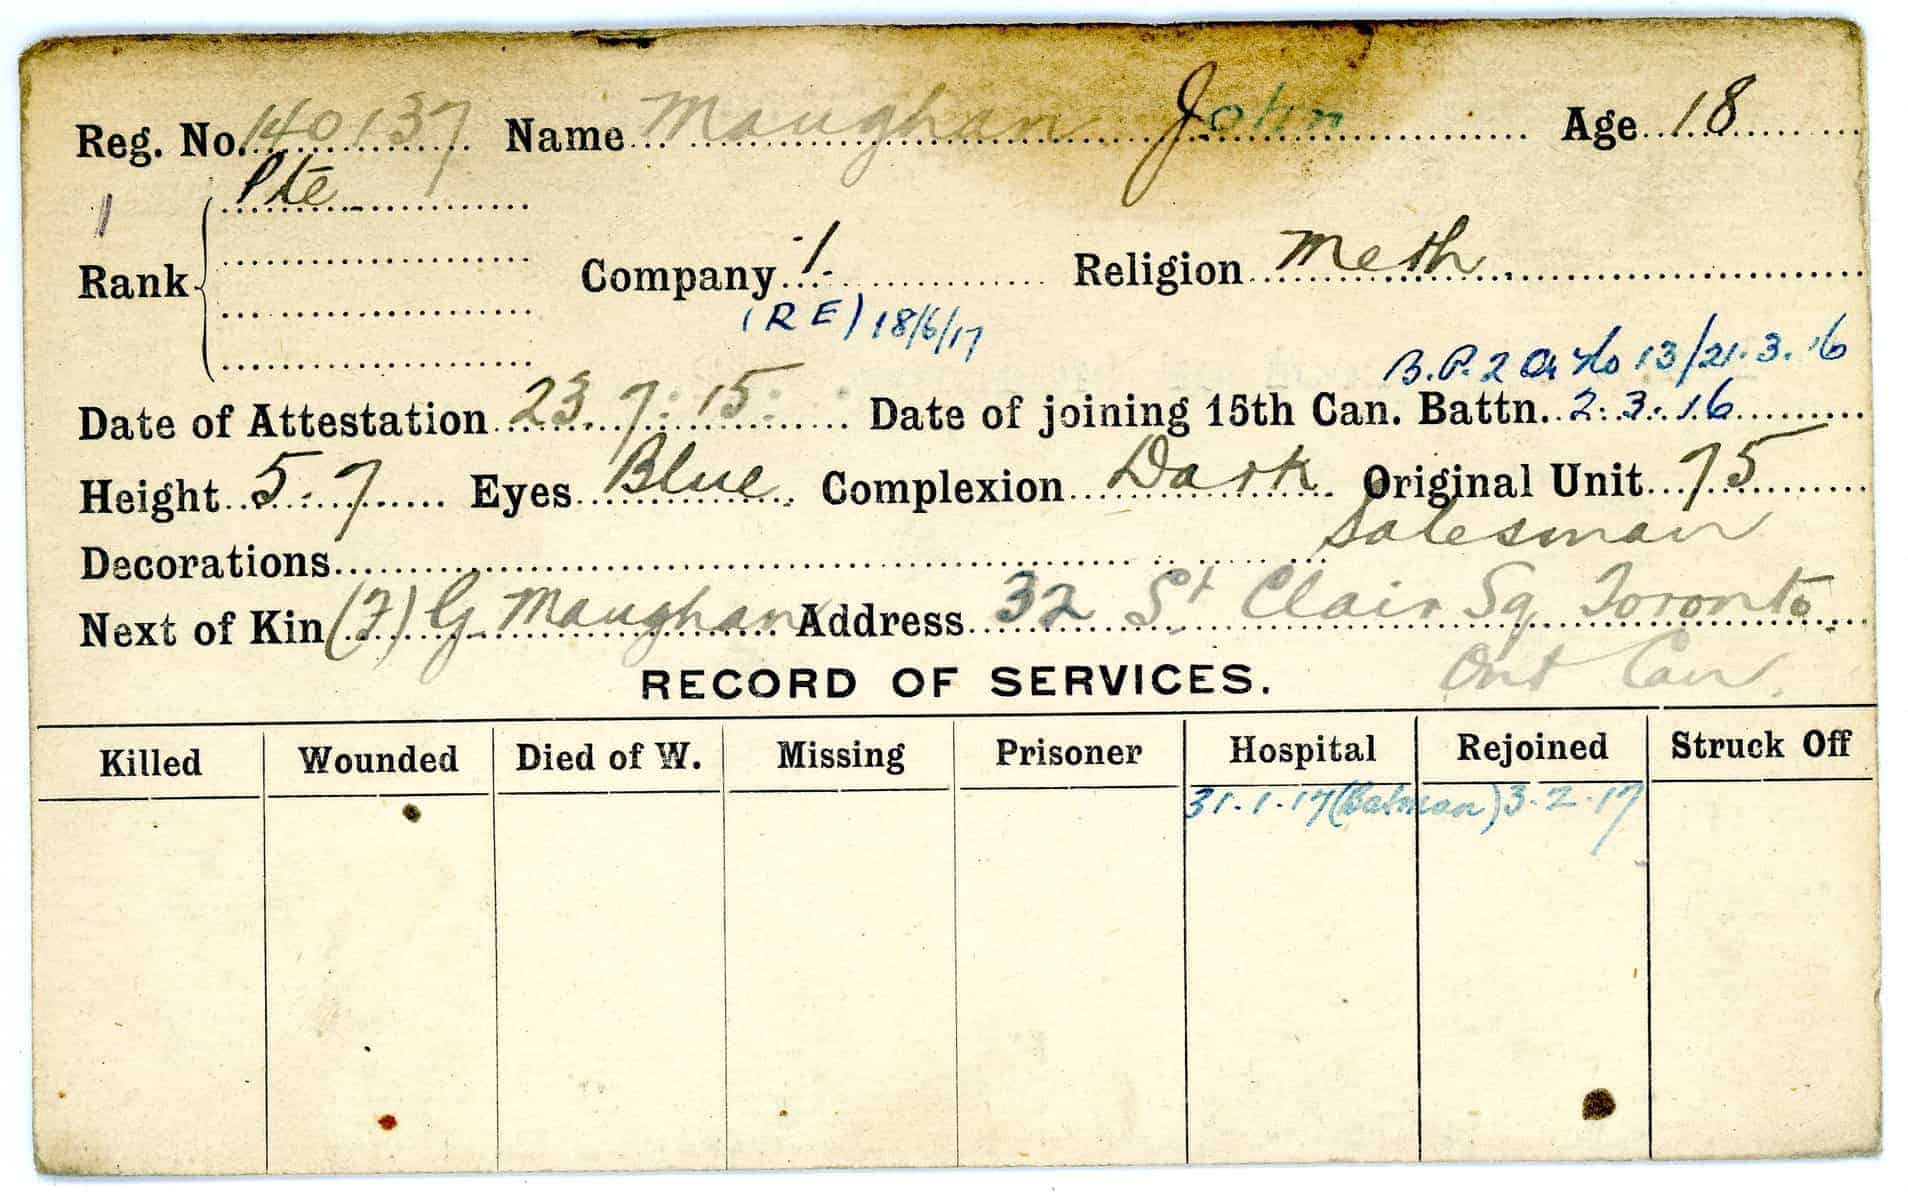 Reg. No. 140137 Name Maughan John Age 18
1 Pte
Rank Company 1. Religion Meth
(RE) 18/6/17
B.P. 2 No 13/21.3.16
Date of Attestation 23.7.15. Date of joining 15th Can. Battn. 2.3.16
Height 5.7 Eyes Blue Complexion Dark Original Unit 75
Decorations Salesman
Next of Kin (F) G Maughan Address 32 St Clair Sq Toronto
Ont Can.
RECORD OF SERVICES.
Killed Wounded Died of W. Missing Prisoner Hospital Rejoined Struck Off
31.1.17 3.2.17